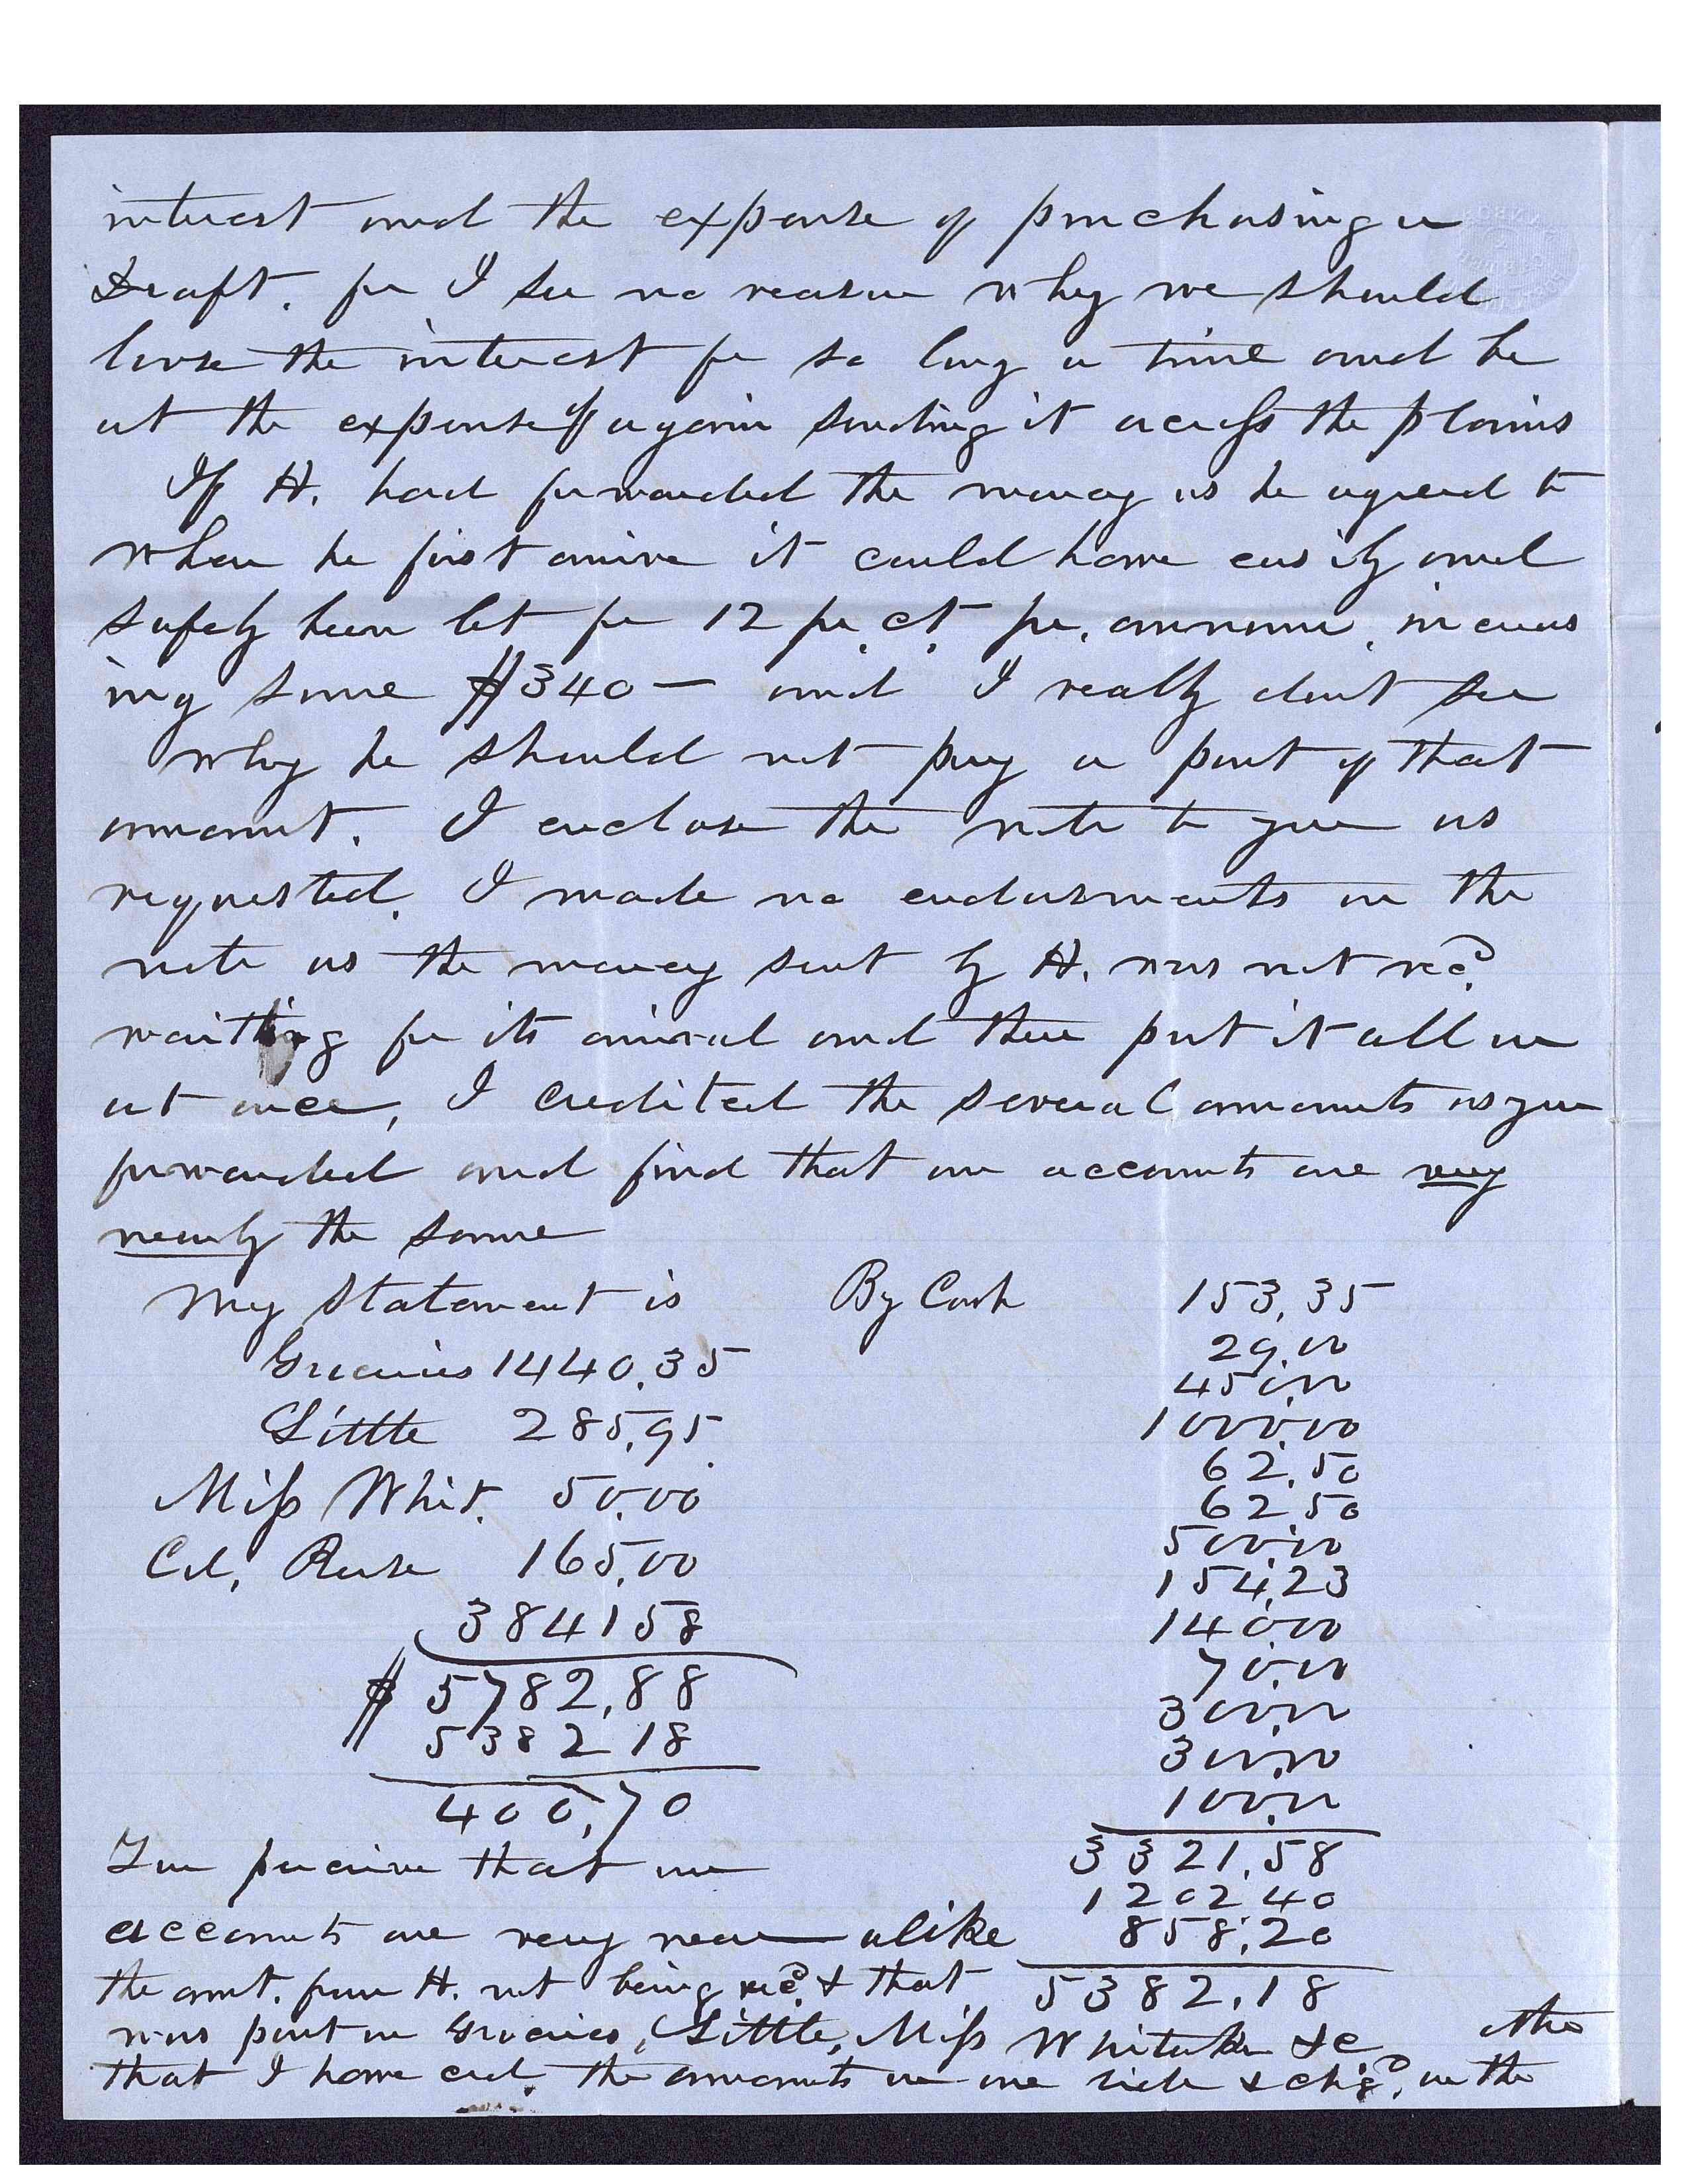 interest and the expense of purchasing a
Draft. for I see no reason why we should
loose the interest for so long a time and be
at the expense of again sending it across the plains
If H. had forwarded the money as he agreed to
when he first arrive it could have easily and
safely been let for 12 per. ct. per. annum. increas
ing some $340 — and I really dont see
why he should not pay a part of that
amount. I enclose the note to you as
requested. I made no endorsments on the
note as the money sent by H. was not recd.
waiting for its arrival and then put it all on
at once, I credited the several amounts as you
forwarded and find that our accounts are very
nearly the same
My Statement is By Cash 153,35
Groceries 1440,35 29,00
Little 285,95 450,00
Miss Whit. 50,00 1000,00
Col, Reese 165,00 62,50
384158 62,50
$ 5782,88 500,00
5382 18 154,23
400,70 140,00
70,00
300,00
300,00
100,00
3321,58
1202 40
858,20
5382,18
You perceive that our
accounts are very near alike
the amt. from H. not being recd. & that
was part on Groceries, Little, Miss Whitaker &c
that I have crd. the amounts on one side & chgd. on the othe